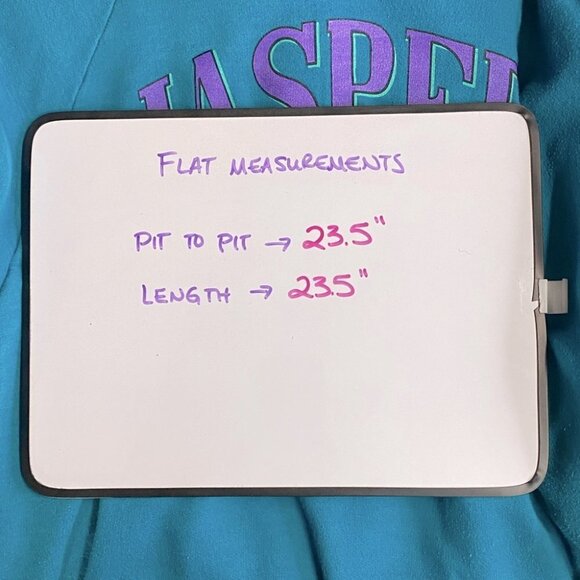 JASPER
FLAT MEASUREMENTS
PIT TO PIT → 23.5"
LENGTH → 23.5"